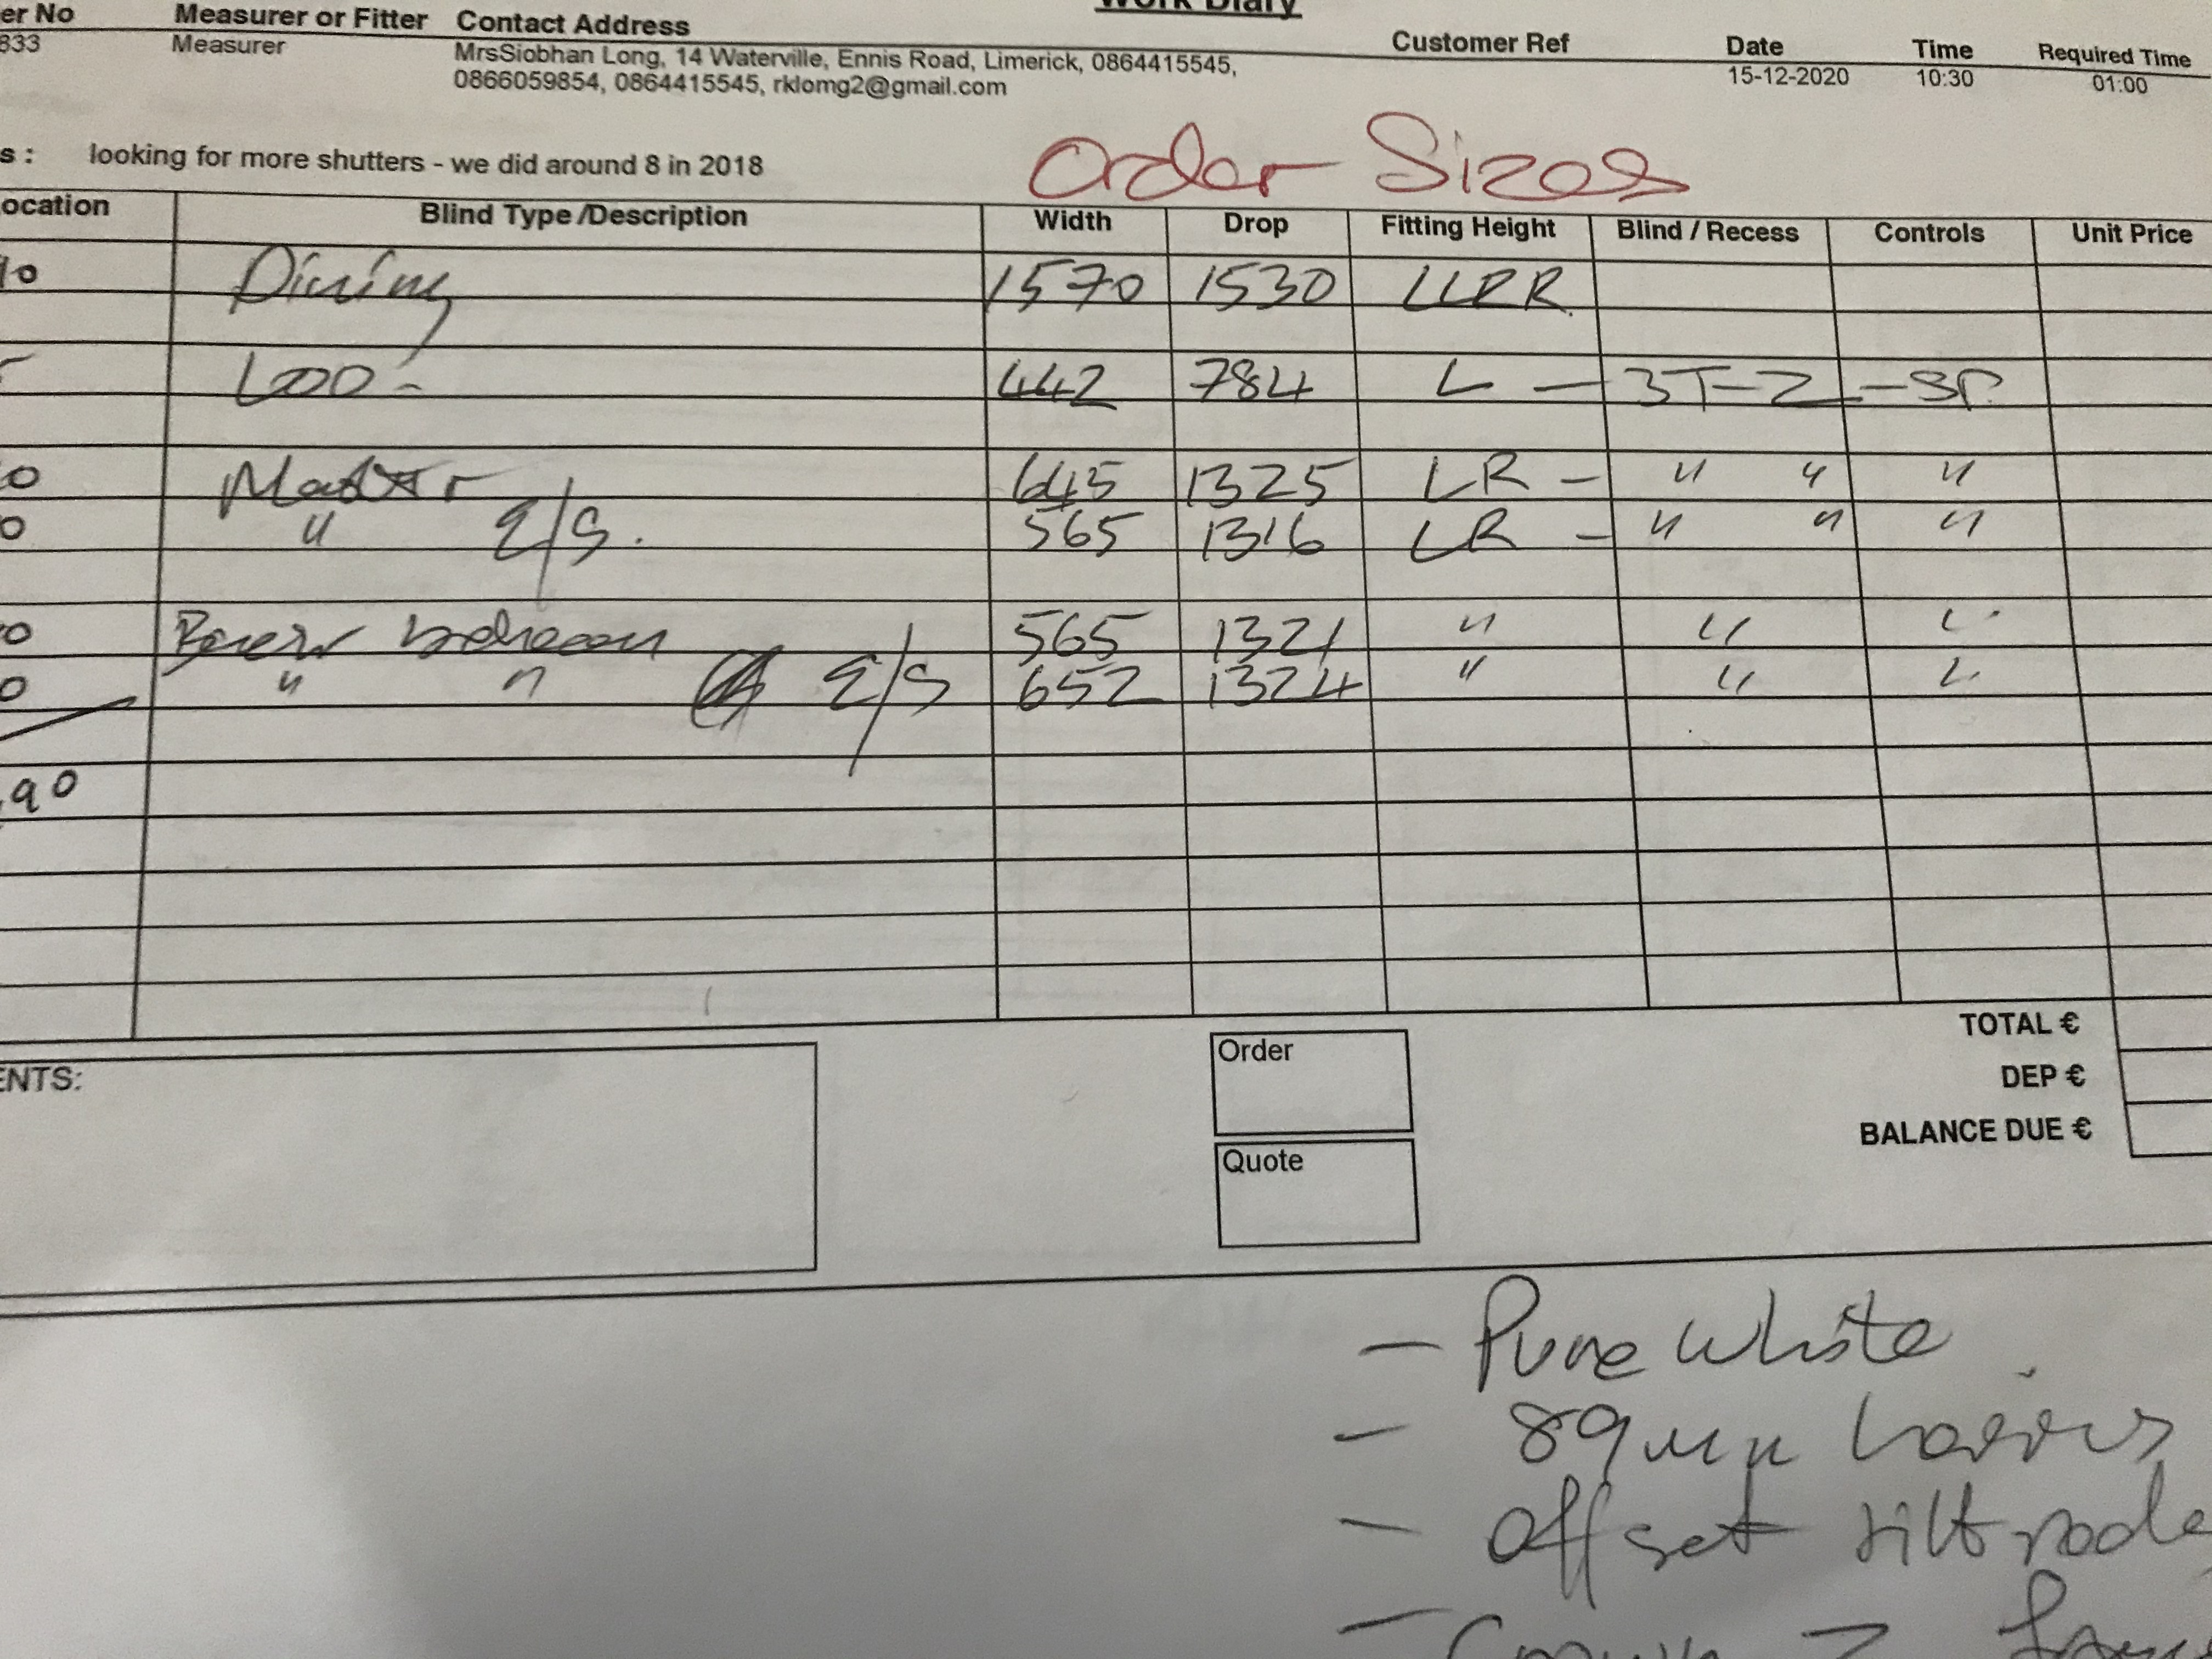 Work Diary
er No Measurer or Fitter Contact Address Customer Ref Date Time Required Time
833 Measurer MrsSiobhan Long, 14 Waterville, Ennis Road, Limerick, 0864415545, 15-12-2020 10:30 01:00
0866059854, 0864415545, rklomg2@gmail.com
Order Sizes
s : looking for more shutters - we did around 8 in 2018
ocation Blind Type /Description Width Drop Fitting Height Blind / Recess Controls Unit Price
10 Dining 1570 1530 LLRR
Loo - 442 784 L - 3T-Z - SP.
0 Master 645 1325 LR - " " "
0 " E/S. 565 1316 LR - " " "
0 bedroom 565 1321 " " "
0 " " E/S 652 1324 " " "
.90
TOTAL €
ENTS: Order DEP €
BALANCE DUE €
Quote
- Pure white
- 89mm
- offset tilt rods
- Crown Z